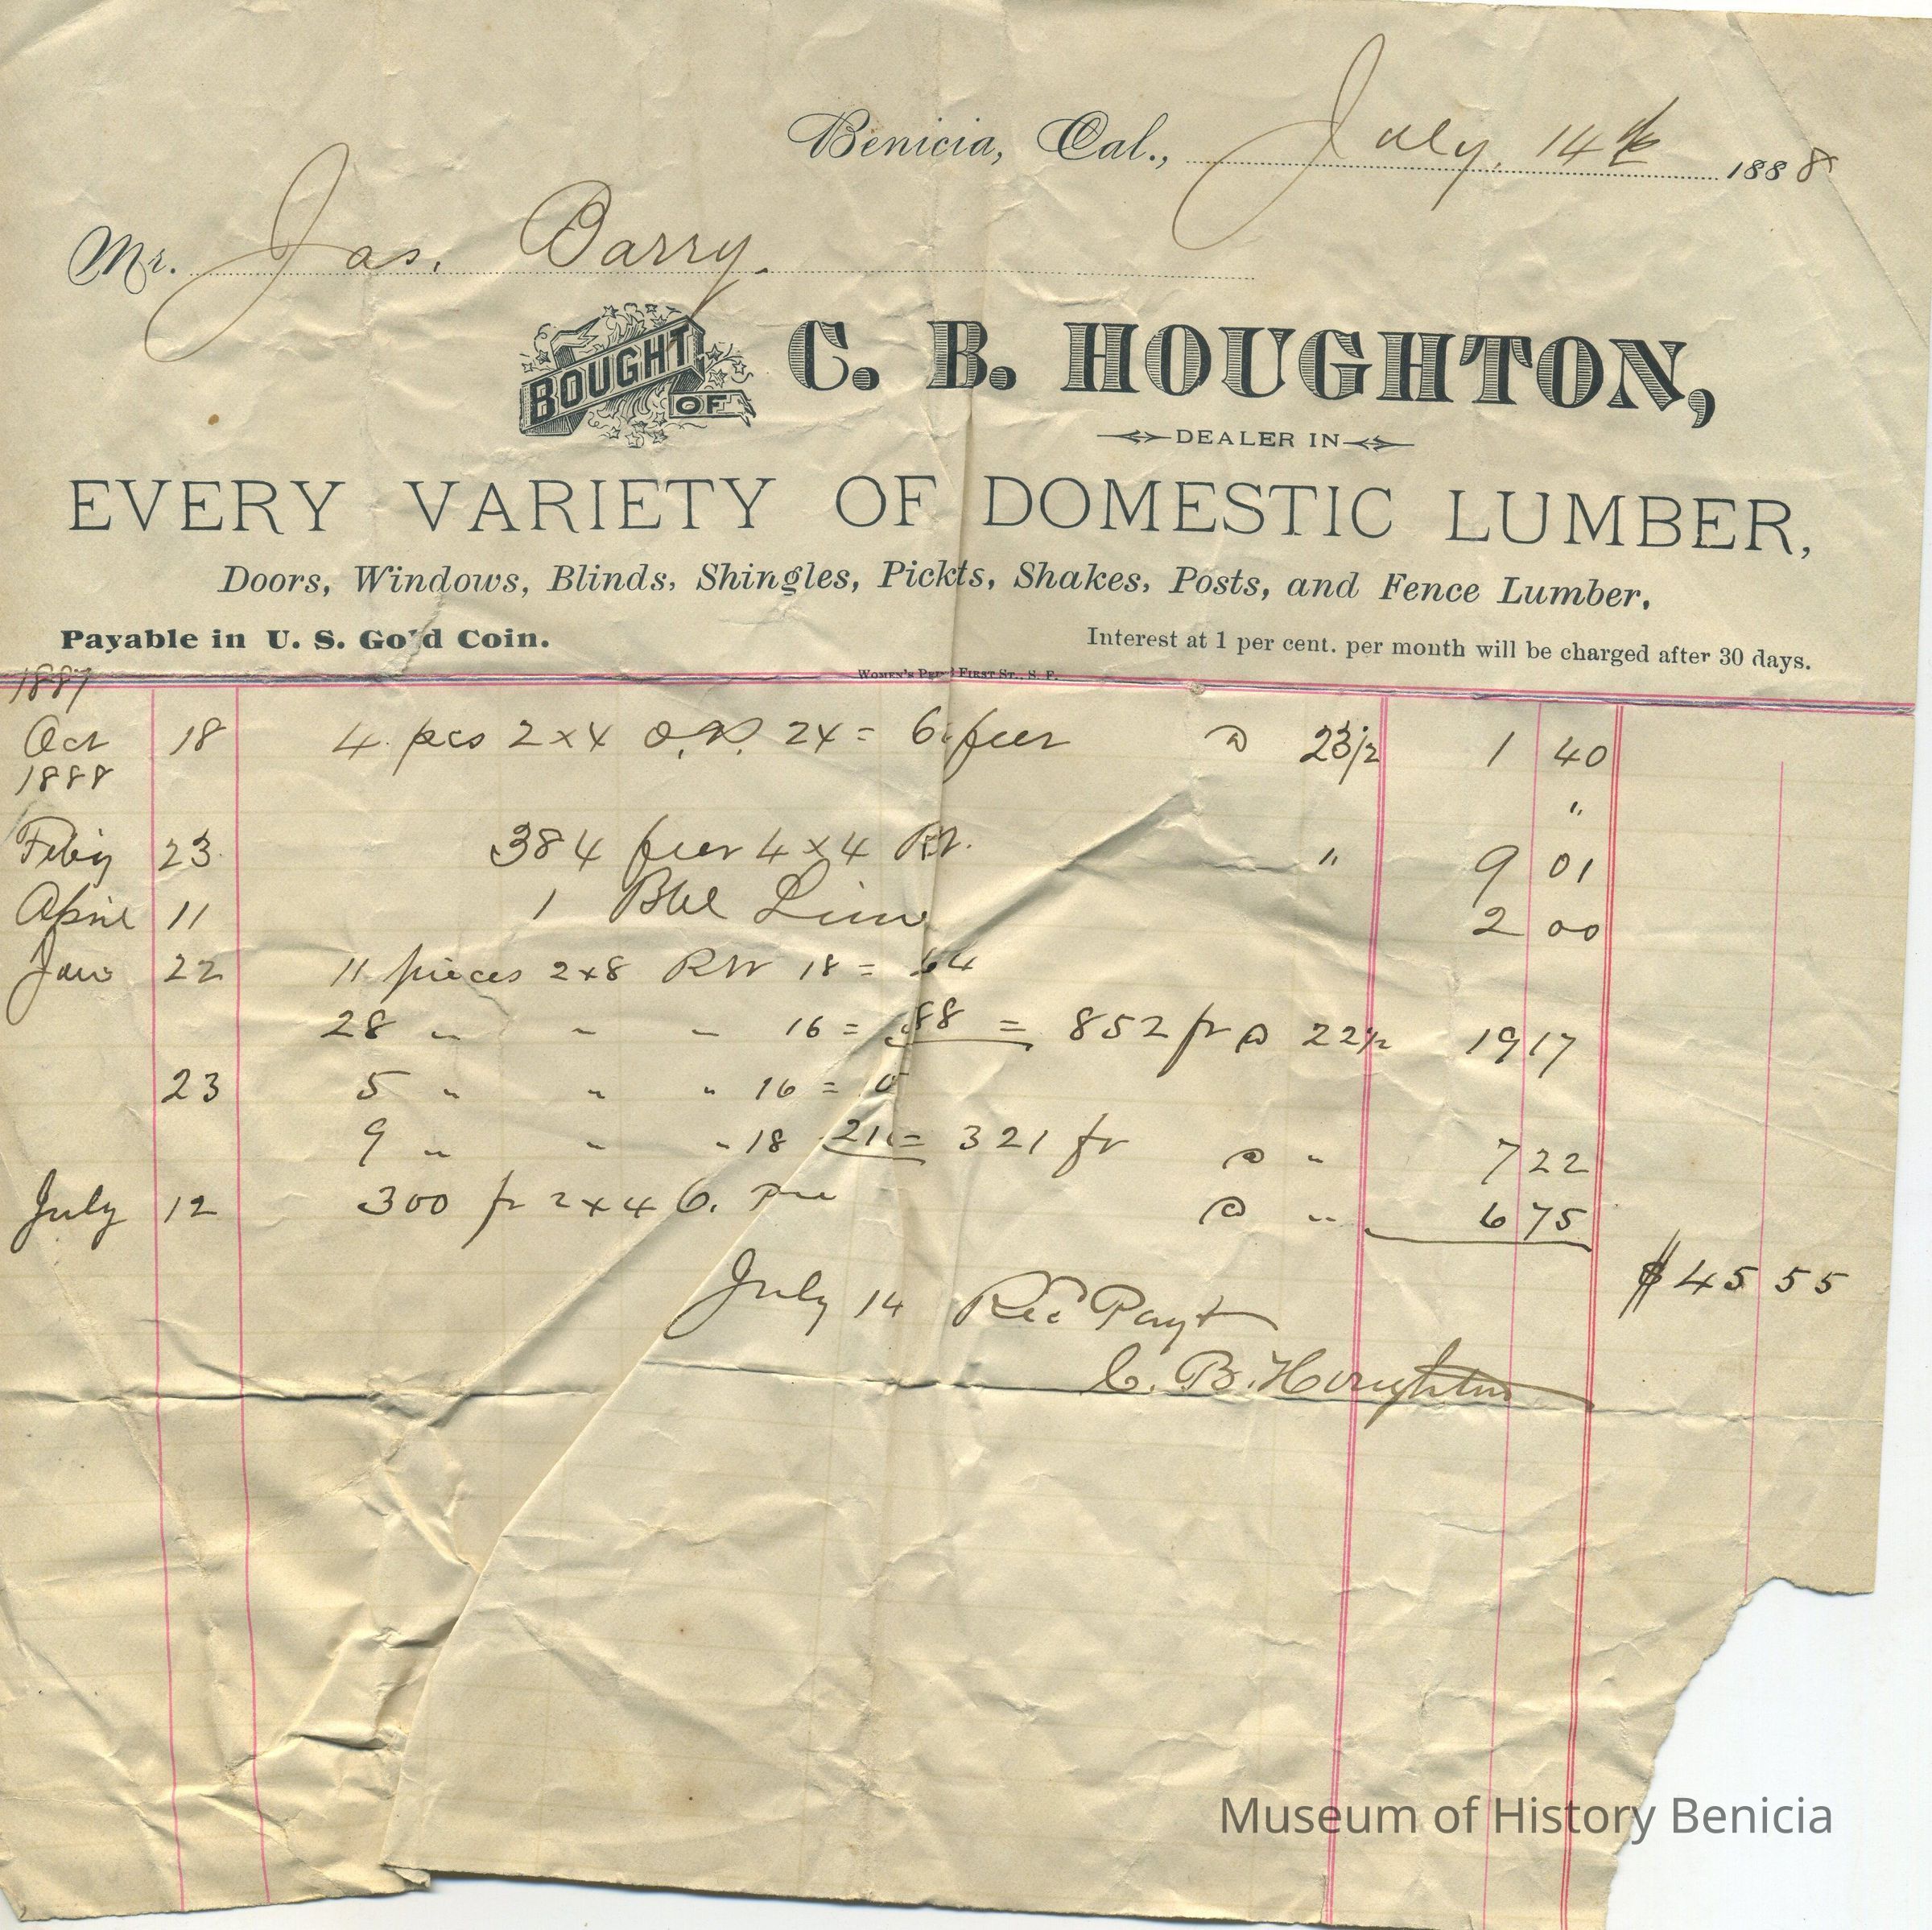 Benicia, Cal., July. 14th 1888
Mr. Jas. Barry.
BOUGHT OF C. B. HOUGHTON,
DEALER IN
EVERY VARIETY OF DOMESTIC LUMBER,
Doors, Windows, Blinds, Shingles, Pickts, Shakes, Posts, and Fence Lumber,
Payable in U. S. Gold Coin. Interest at 1 per cent. per month will be charged after 30 days.
WOMEN'S FIRST ST., S. F.
1887
Oct 18 4 pcs 2x4 O.P. 24 = feet @ 23½ 1 40
1888 "
Feby 23 384 feet 4x4 " 9 01
April 11 1 Bbl Lime 2 00
22 11 pieces 2x8 RW 18 =
28 " " " 16 = = 852 ft @ 22½ 19 17
23 5 " " " 16 =
9 " " " 18 = 321 ft @ " 7 22
July 12 300 ft 2x4 O. Pine @ " 6 75
$45 55
July 14 Rec Payt
C. B. Houghton
Museum of History Benicia